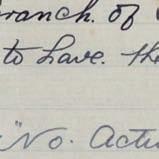 Branch. of
to have. the
"No. Actu